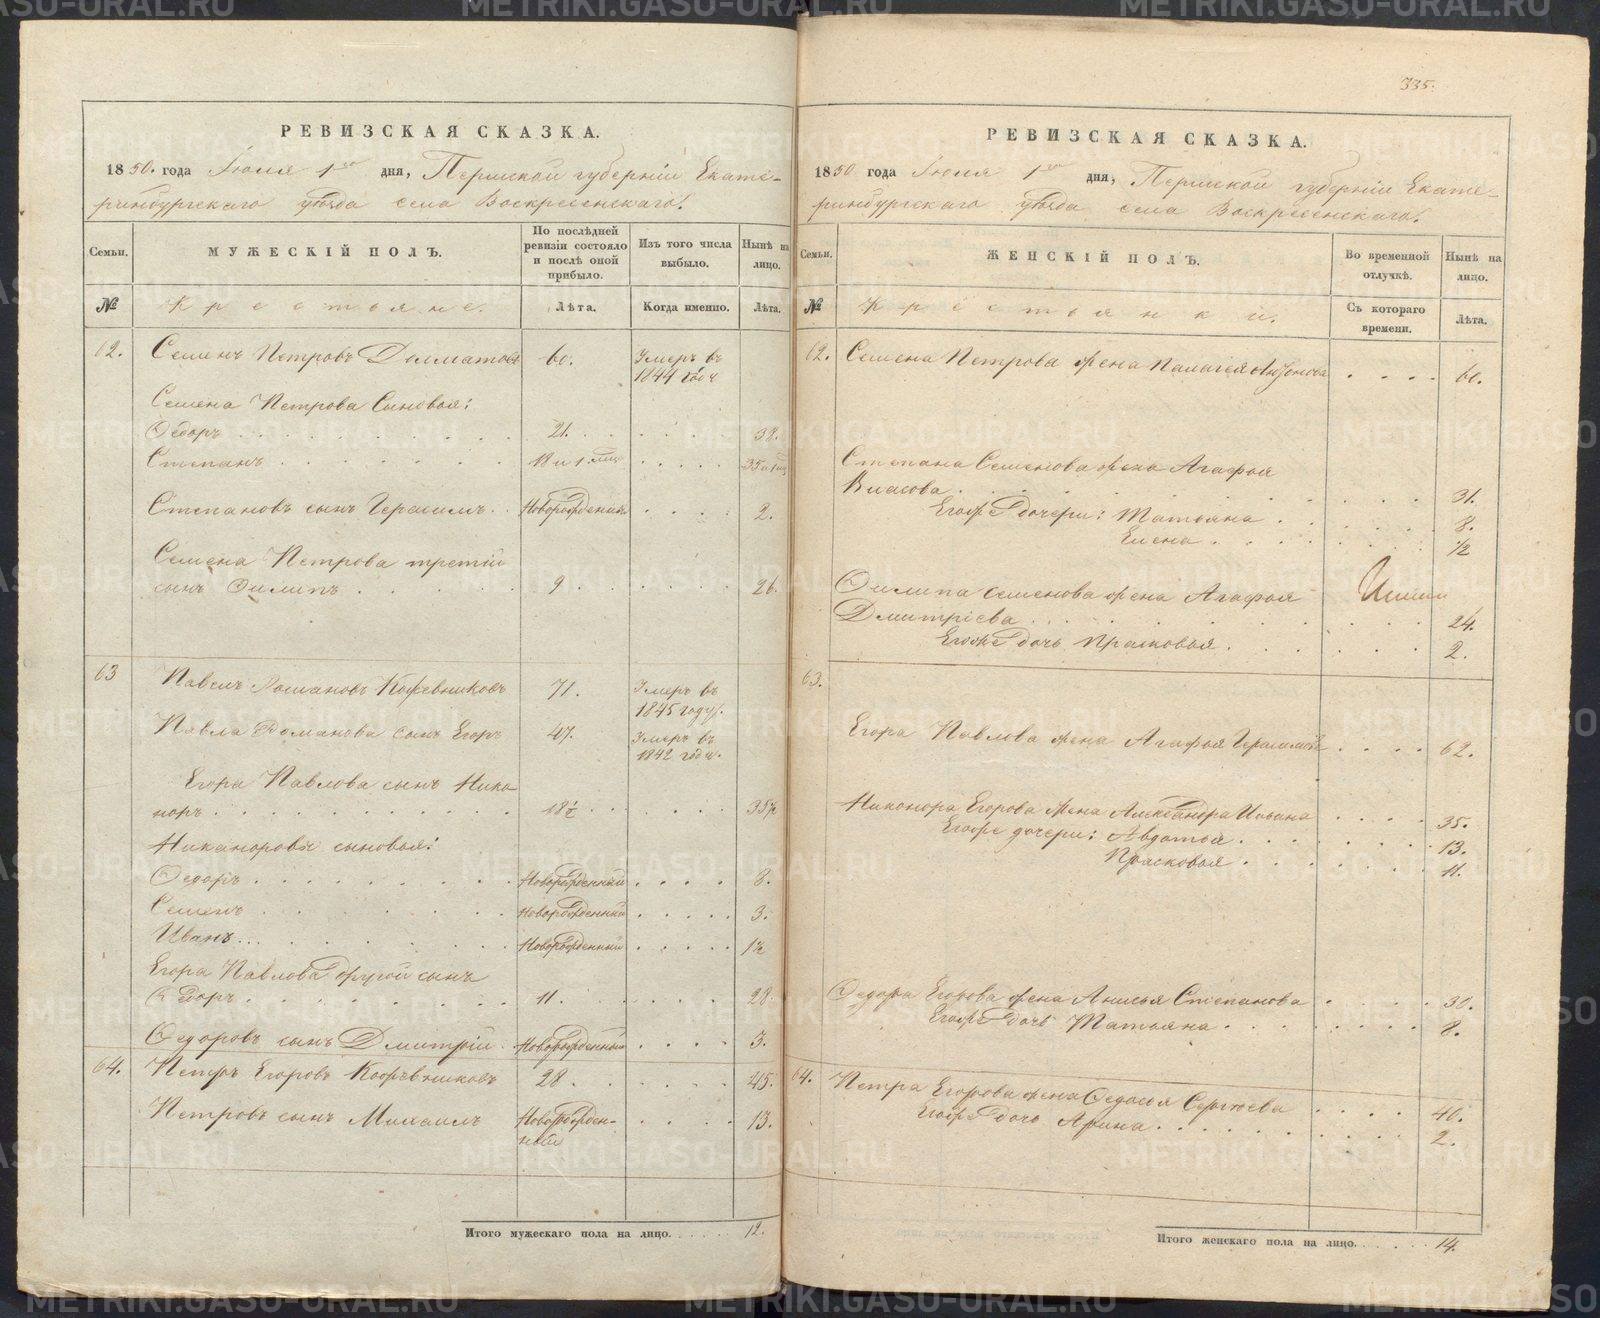 РЕВИЗСКАЯ СКАЗКА.
1850. года Июля 1го дня, Пермской губерніи Екате-
ринбургскаго уѣзда села Воскресенскаго.
Семьи. МУЖЕСКІЙ ПОЛЪ. По послѣдней ревизіи состояло и послѣ оной прибыло. Изъ того числа выбыло. Нынѣ на лицо.
№ Крестьяне. Лѣта. Когда именно. Лѣта.
62. Семенъ Петровъ Долматовъ 60. Умеръ въ
1844 годѣ
Семена Петрова Сыновья:
Ѳедоръ 21. 38.
Степанъ 18 и 1 мѣс 35 и 1 мѣс
Степановъ сынъ Герасимъ Новорожденный 2.
Семена Петрова третій
сынъ Филипъ 9. 26.
63 Павелъ Романовъ Кожевниковъ 71. Умеръ въ
1845 году.
Павла Романова сынъ Егоръ 47. Умеръ въ
1842 годѣ.
Егора Павлова сынъ Нико-
норъ 18½ 35½
Никаноровы сыновья:
Ѳедоръ Новорожденный 8.
Семенъ Новорожденный 3.
Иванъ Новорожденный 1½
Егора Павлова другой сынъ
Ѳедоръ 11. 28.
Ѳедоровъ сынъ Дмитрій Новорожденный 3.
64. Петръ Егоровъ Кожевниковъ 28. 45.
Петровъ сынъ Михаилъ Новорожден- 13.
ный
Итого мужескаго пола на лицо. 12.
335.
РЕВИЗСКАЯ СКАЗКА.
1850 года Июля 1го дня, Пермской губерніи Екате-
ринбургскаго уѣзда села Воскресенскаго.
Семьи. ЖЕНСКІЙ ПОЛЪ. Во временной отлучкѣ. Нынѣ на лицо.
№ Крестьянки. Съ котораго времени. Лѣта.
62. Семена Петрова жена Палагея 60.
Степана Семенова жена Агафья
Власова 31.
Егожъ дочери: Татьяна 8.
Елена ½
Филипа Семенова жена Агафья
Дмитріева 24.
Егожъ дочь Прасковья 2.
63. Егора Павлова жена Агафья Герасимова 62.
Никонора Егорова жена Александра Ильина 35.
Егожъ дочери: Авдотья 13.
Прасковья 11.
Ѳедора Егорова жена Анисья Степанова 30.
Егожъ дочь Татьяна 8.
64. Петра Егорова жена Ѳедосья Сергѣева 40.
Егожъ дочь Арина 2.
Итого женскаго пола на лицо. 14.
METRIKI.GASO-URAL.RU